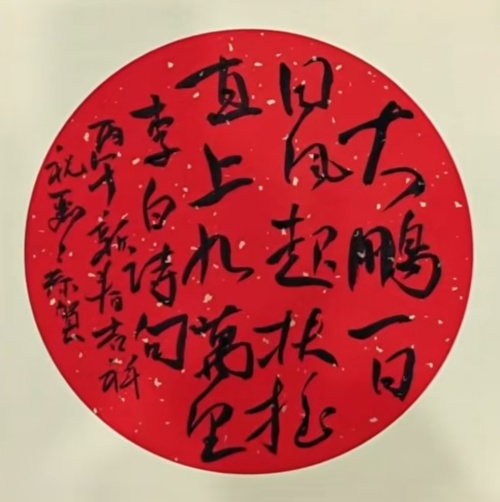 大鹏一日
同风起扶摇
直上九萬里
李白诗句
丙午新春吉祥
祝